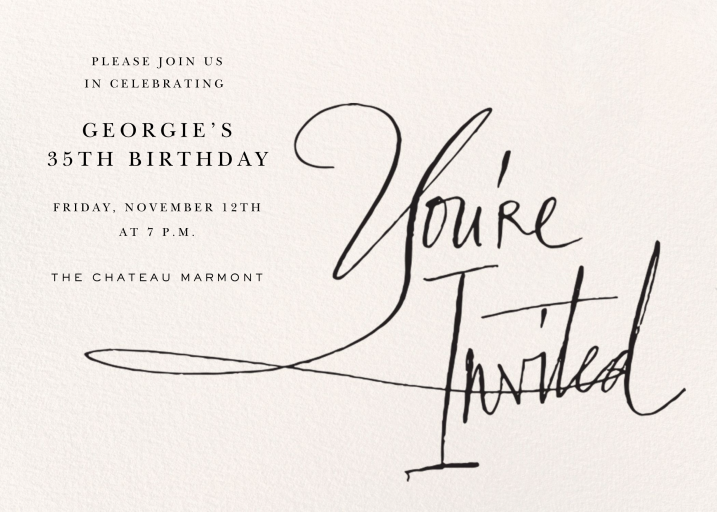 PLEASE JOIN US
IN CELEBRATING
GEORGIE'S
35TH BIRTHDAY
FRIDAY, NOVEMBER 12TH
AT 7 P.M.
THE CHATEAU MARMONT
You're
Invited